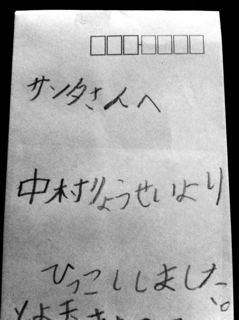 サンタさんへ
中村りょうせいより
ひっこししました。